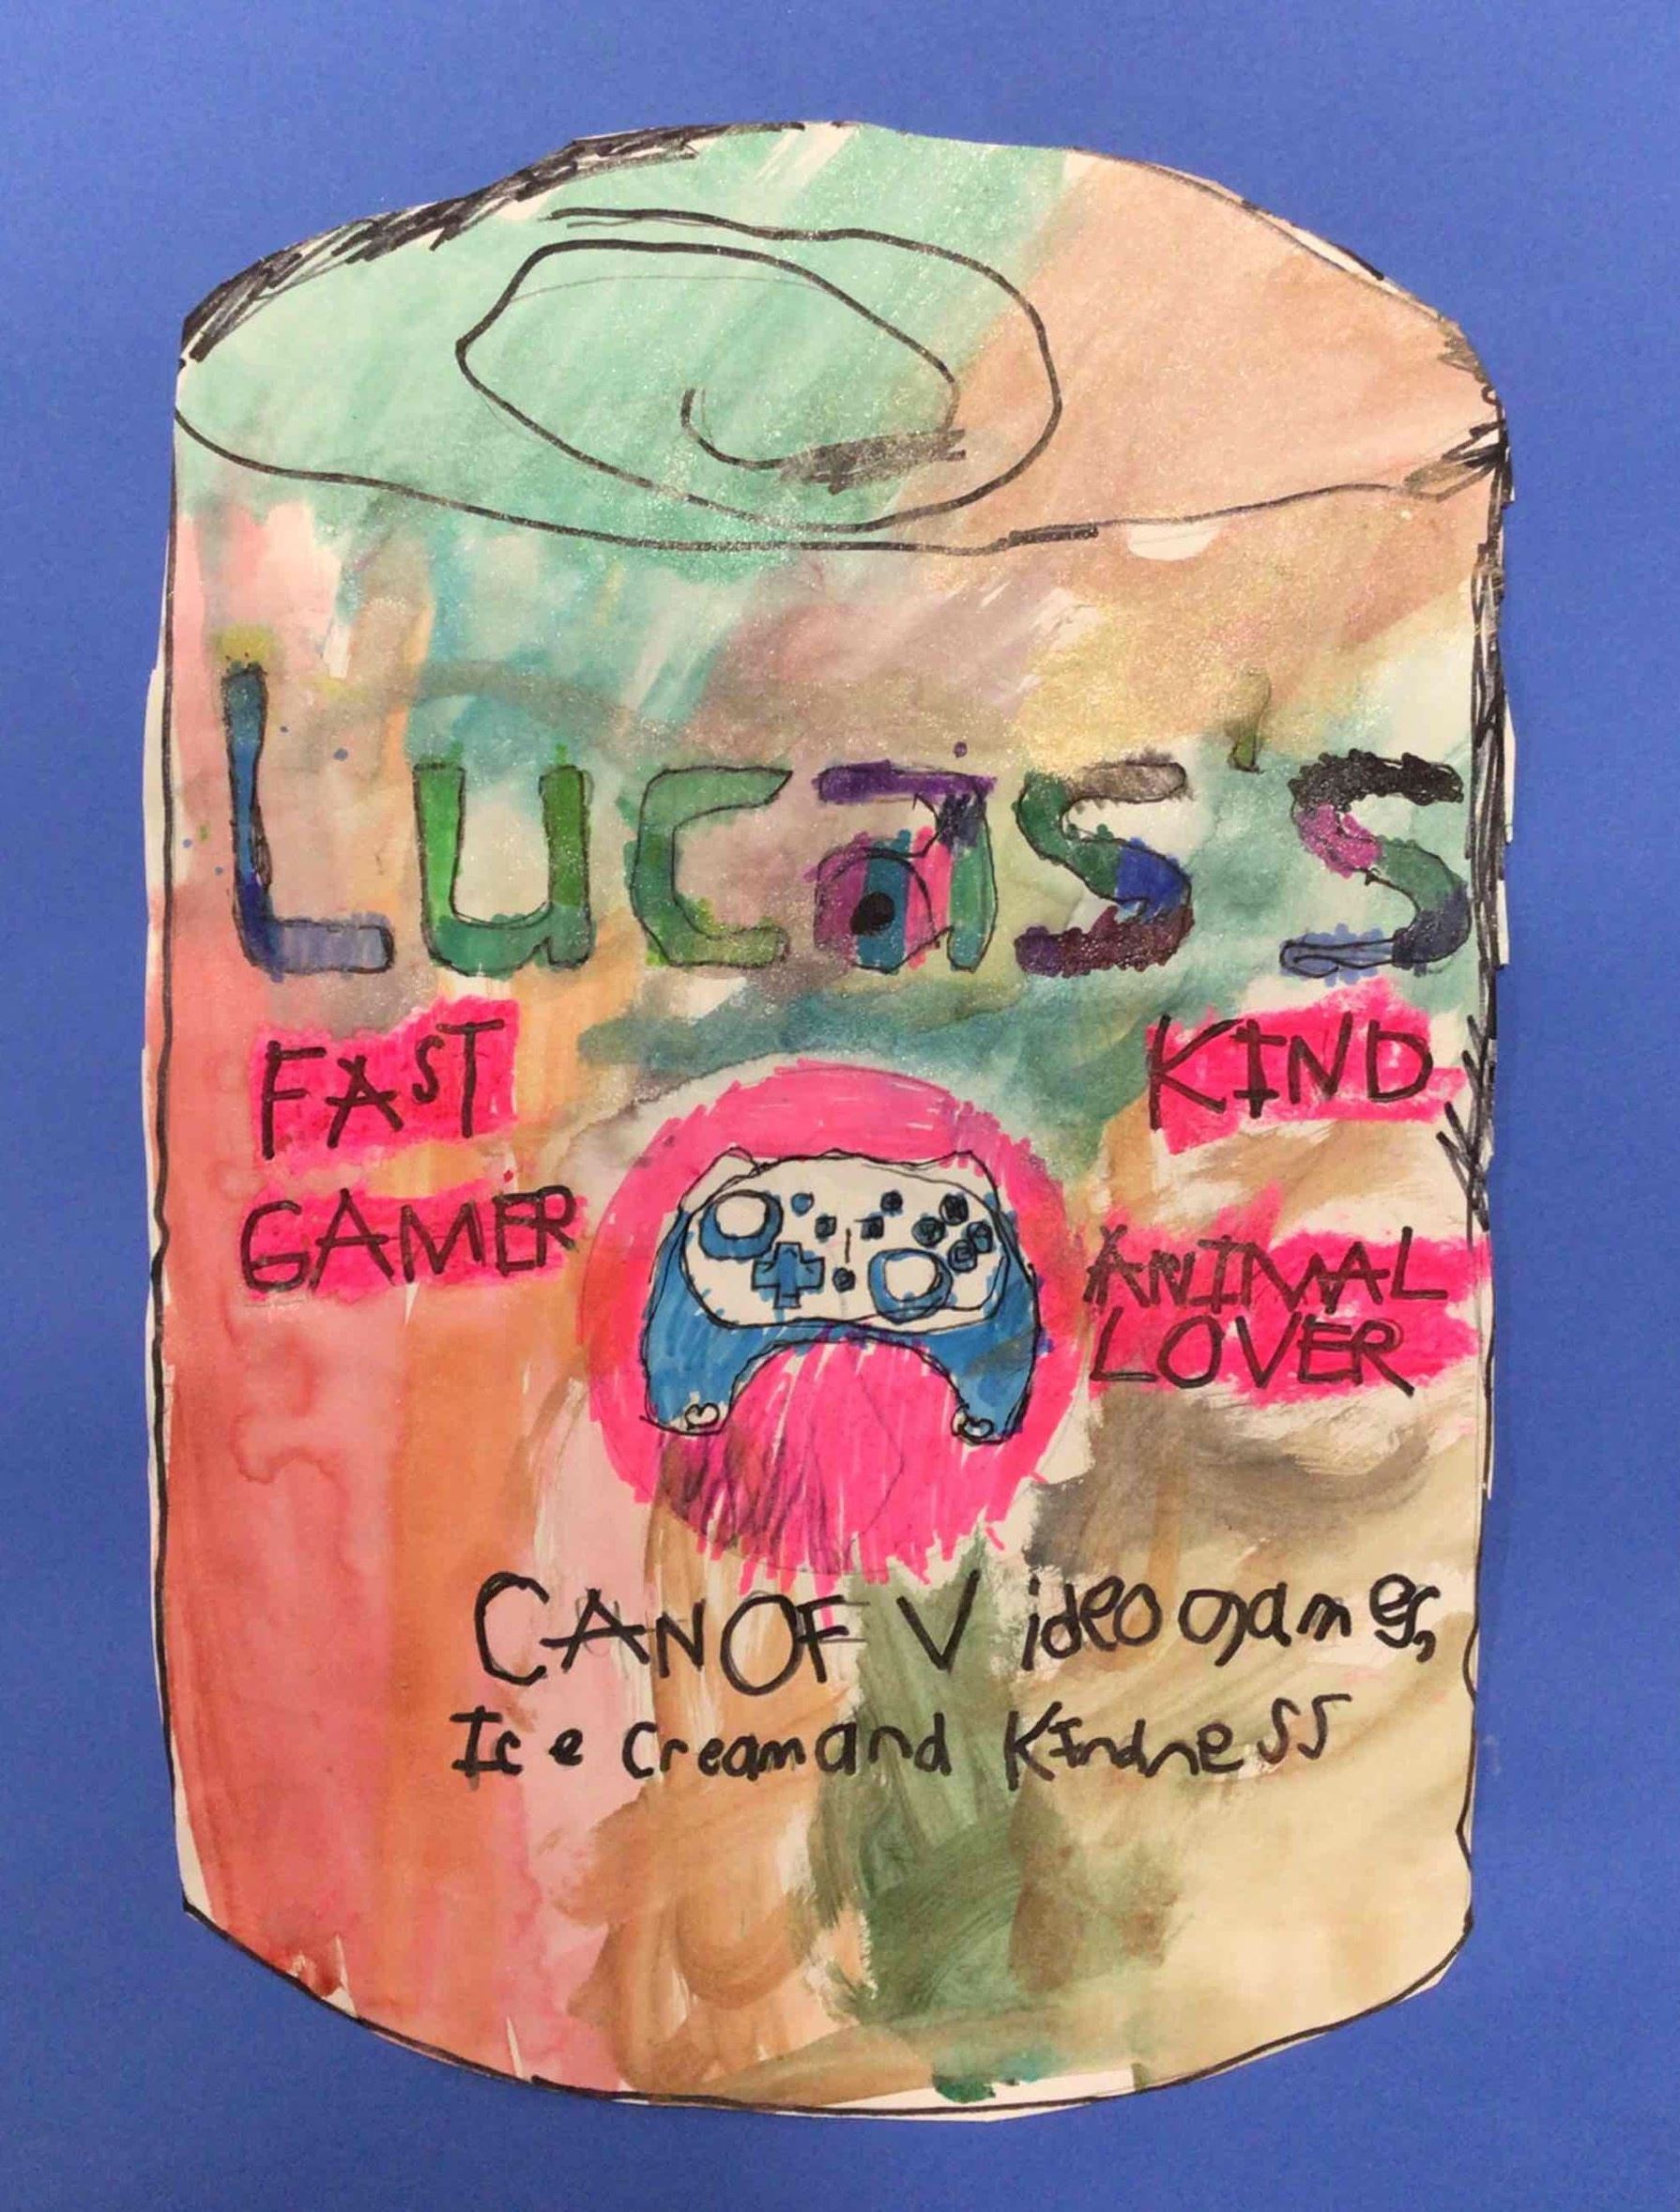 Lucas's
FAST
KIND
GAMER
ANIMAL
LOVER
CAN OF Videogames,
Ice cream and Kindness